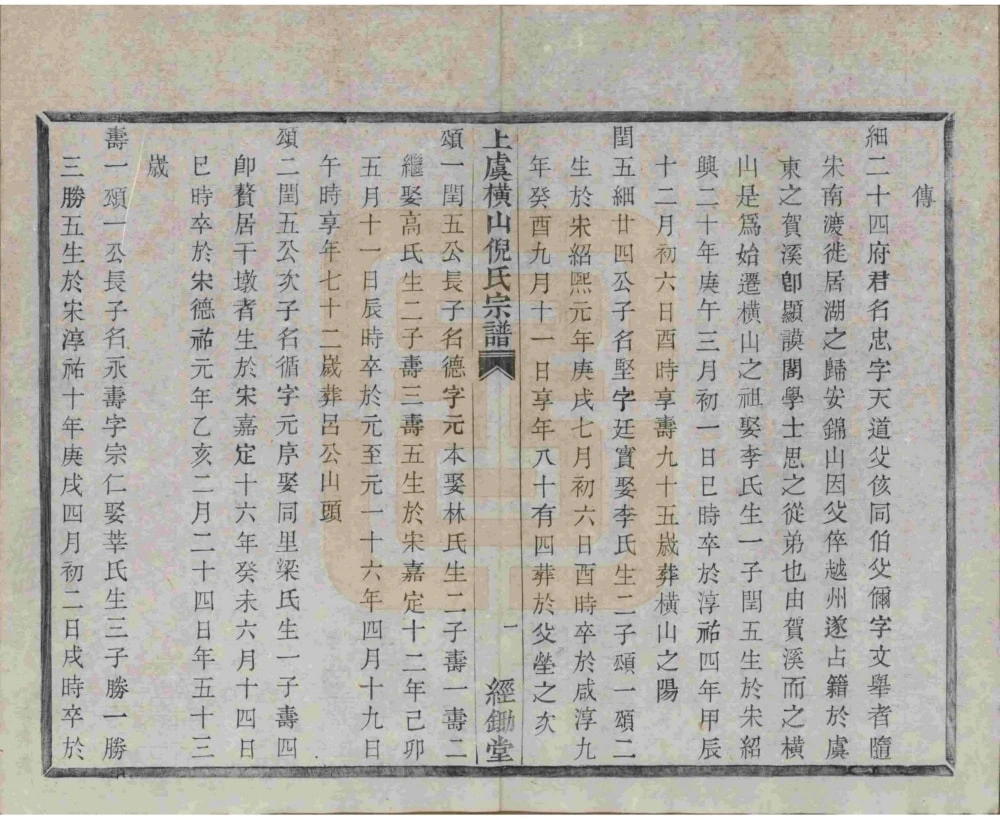 傳
細二十四府君名忠字天道父侅同伯父儞字文舉者隨
宋南渡徙居湖之歸安錦山因父倅越州遂占籍於虞
東之賀溪卽顯謨閣學士思之從弟也由賀溪而之橫
山是爲始遷橫山之祖娶李氏生一子閏五生於宋紹
興二十年庚午三月初一日巳時卒於淳祐四年甲辰
十二月初六日酉時享壽九十五歲葬橫山之陽
閏五細廿四公子名堅字廷實娶李氏生二子頌一頌二
生於宋紹熙元年庚戌七月初六日酉時卒於咸淳九
年癸酉九月十一日享年八十有四葬於父塋之次
上虞橫山倪氏宗譜
一
經鋤堂
頌一閏五公長子名德字元本娶林氏生二子壽一壽二
繼娶高氏生二子壽三壽五生於宋嘉定十二年己卯
五月十一日辰時卒於元至元一十六年四月十九日
午時享年七十二歲葬呂公山頭
頌二閏五公次子名循字元序娶同里梁氏生一子壽四
卽贅居干墩者生於宋嘉定十六年癸未六月十四日
巳時卒於宋德祐元年乙亥二月二十四日年五十三
歲
壽一頌一公長子名永壽字宗仁娶莘氏生三子勝一勝
三勝五生於宋淳祐十年庚戌四月初二日戌時卒於